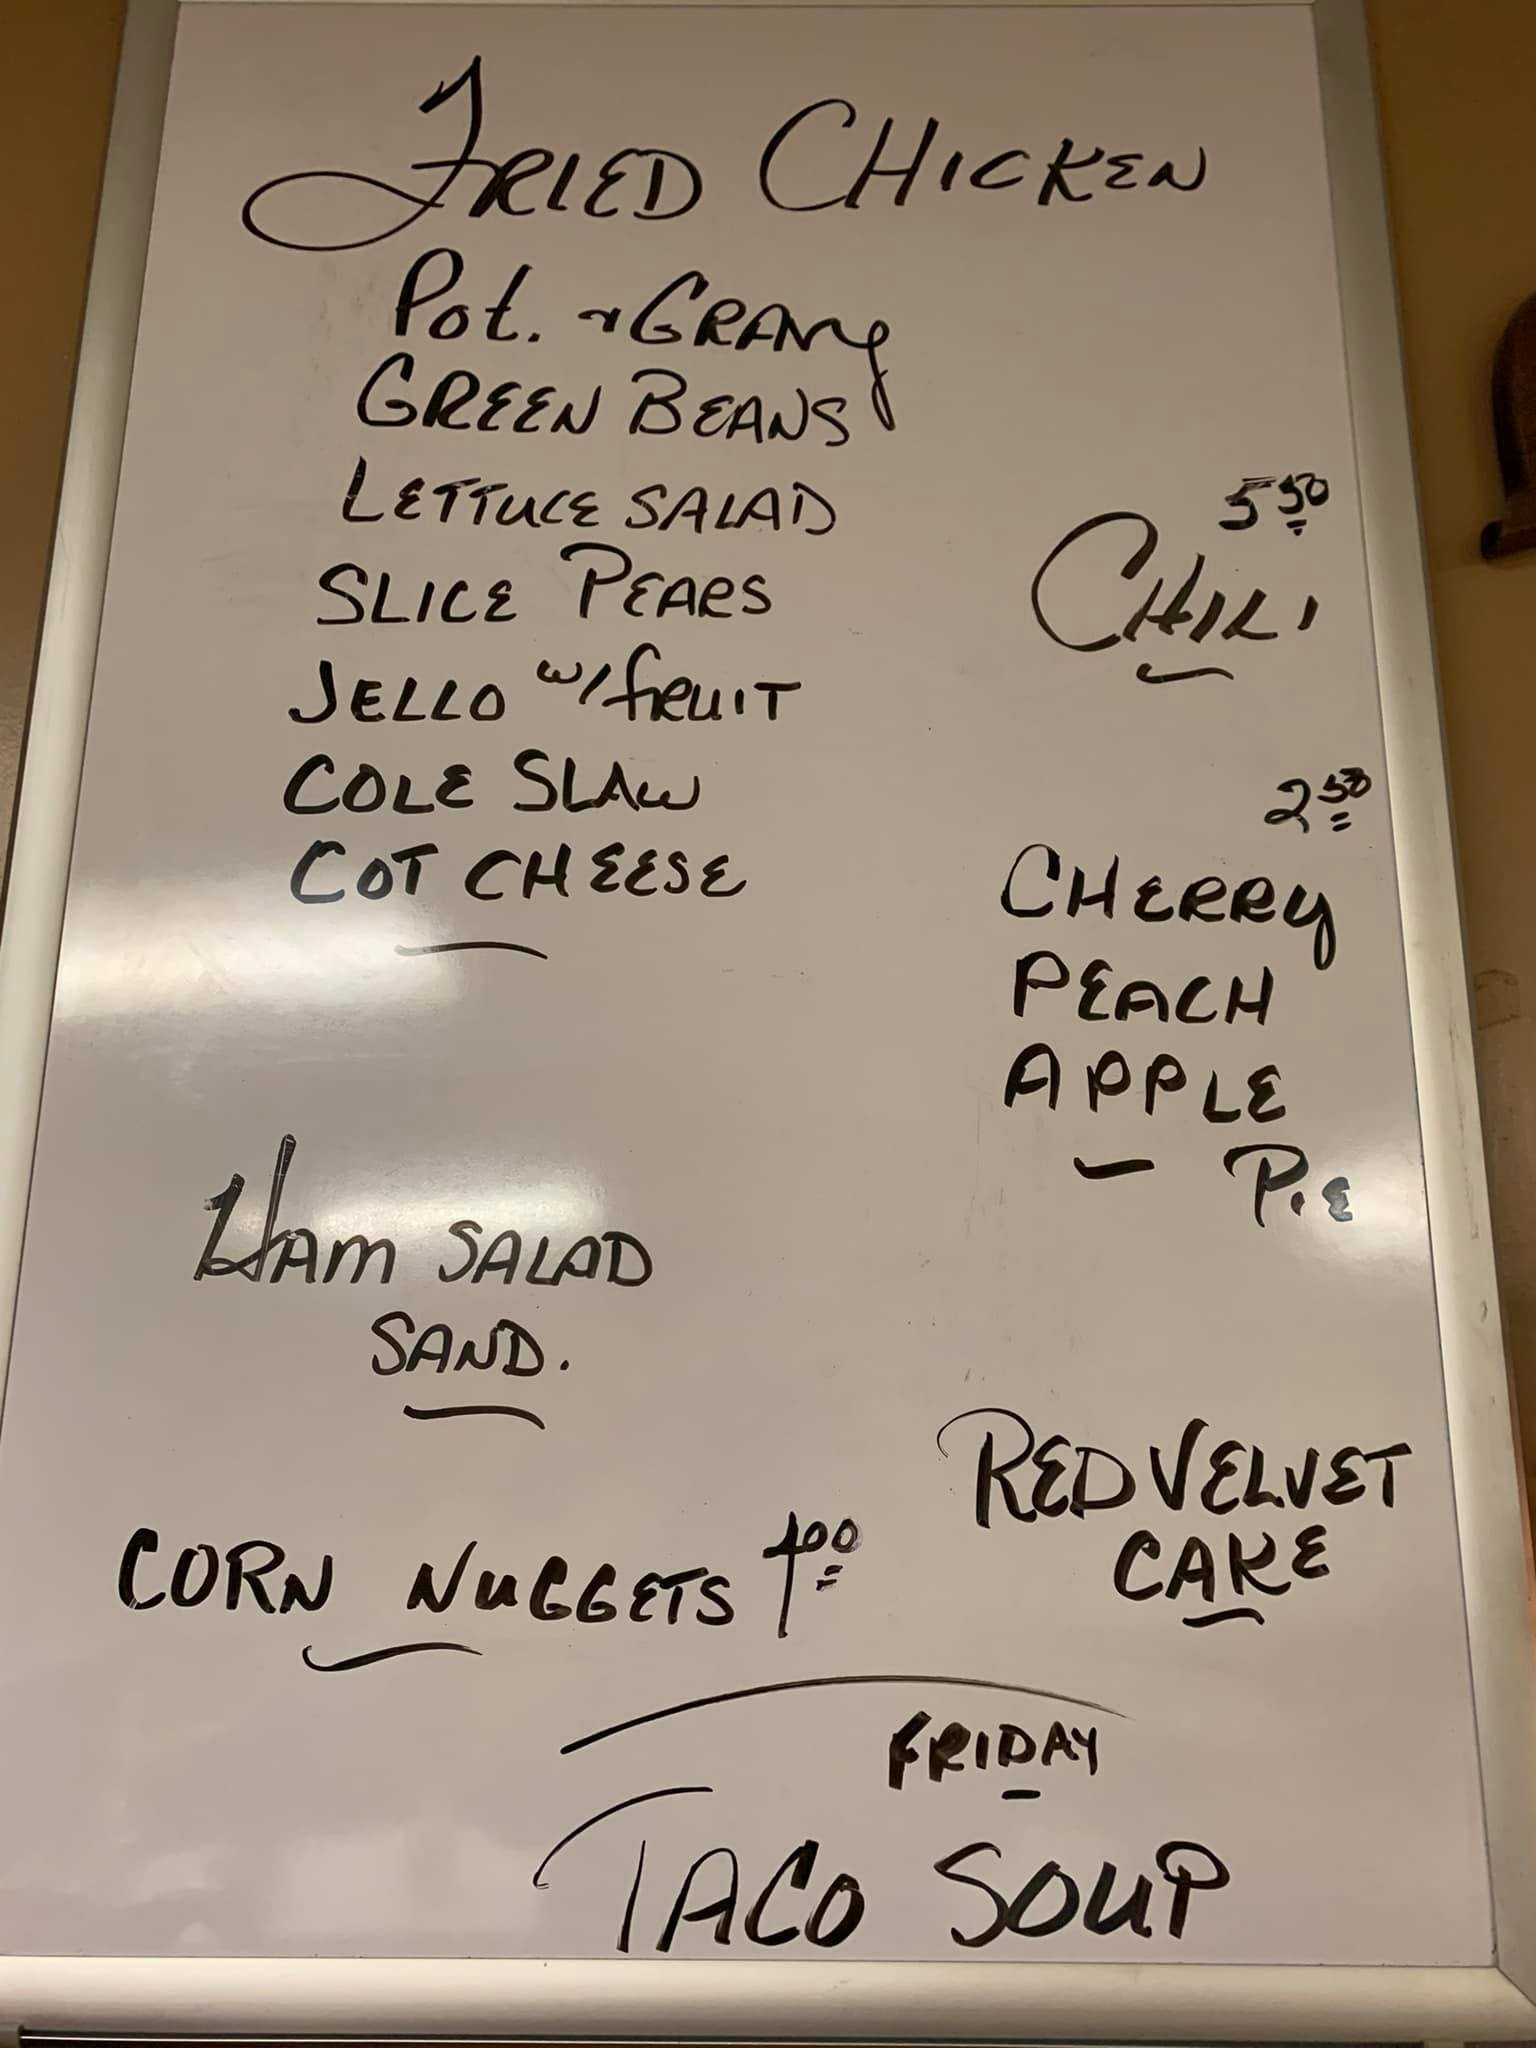 FRIED CHICKEN
Pot. & GRAVY
GREEN BEANS
LETTUCE SALAD
SLICE PEARS
JELLO w/ fRUIT
COLE SLAW
COT CHEESE
5.50
CHILI
2.50
CHERRY
PEACH
APPLE
PIE
HAM SALAD
SAND.
CORN NUGGETS 4.00
RED VELVET
CAKE
FRIDAY
TACO SOUP